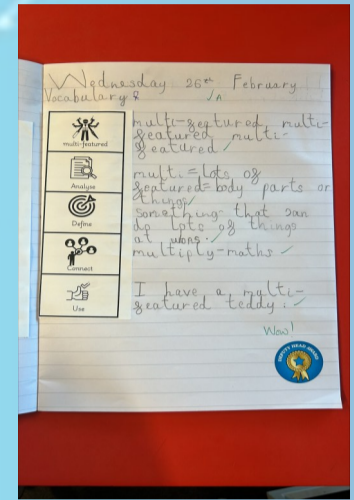 Wednesday 26th February
Vocabulary
multi-featured
Analyse
Define
Connect
Use
multi-featured multi-
featured multi-
featured
multi=lots of
featured=body parts or
things
something that can
do lots of things
at wons.
multiply-maths
I have a multi-
featured teddy.
Wow!
DEPUTY HEAD AWARD